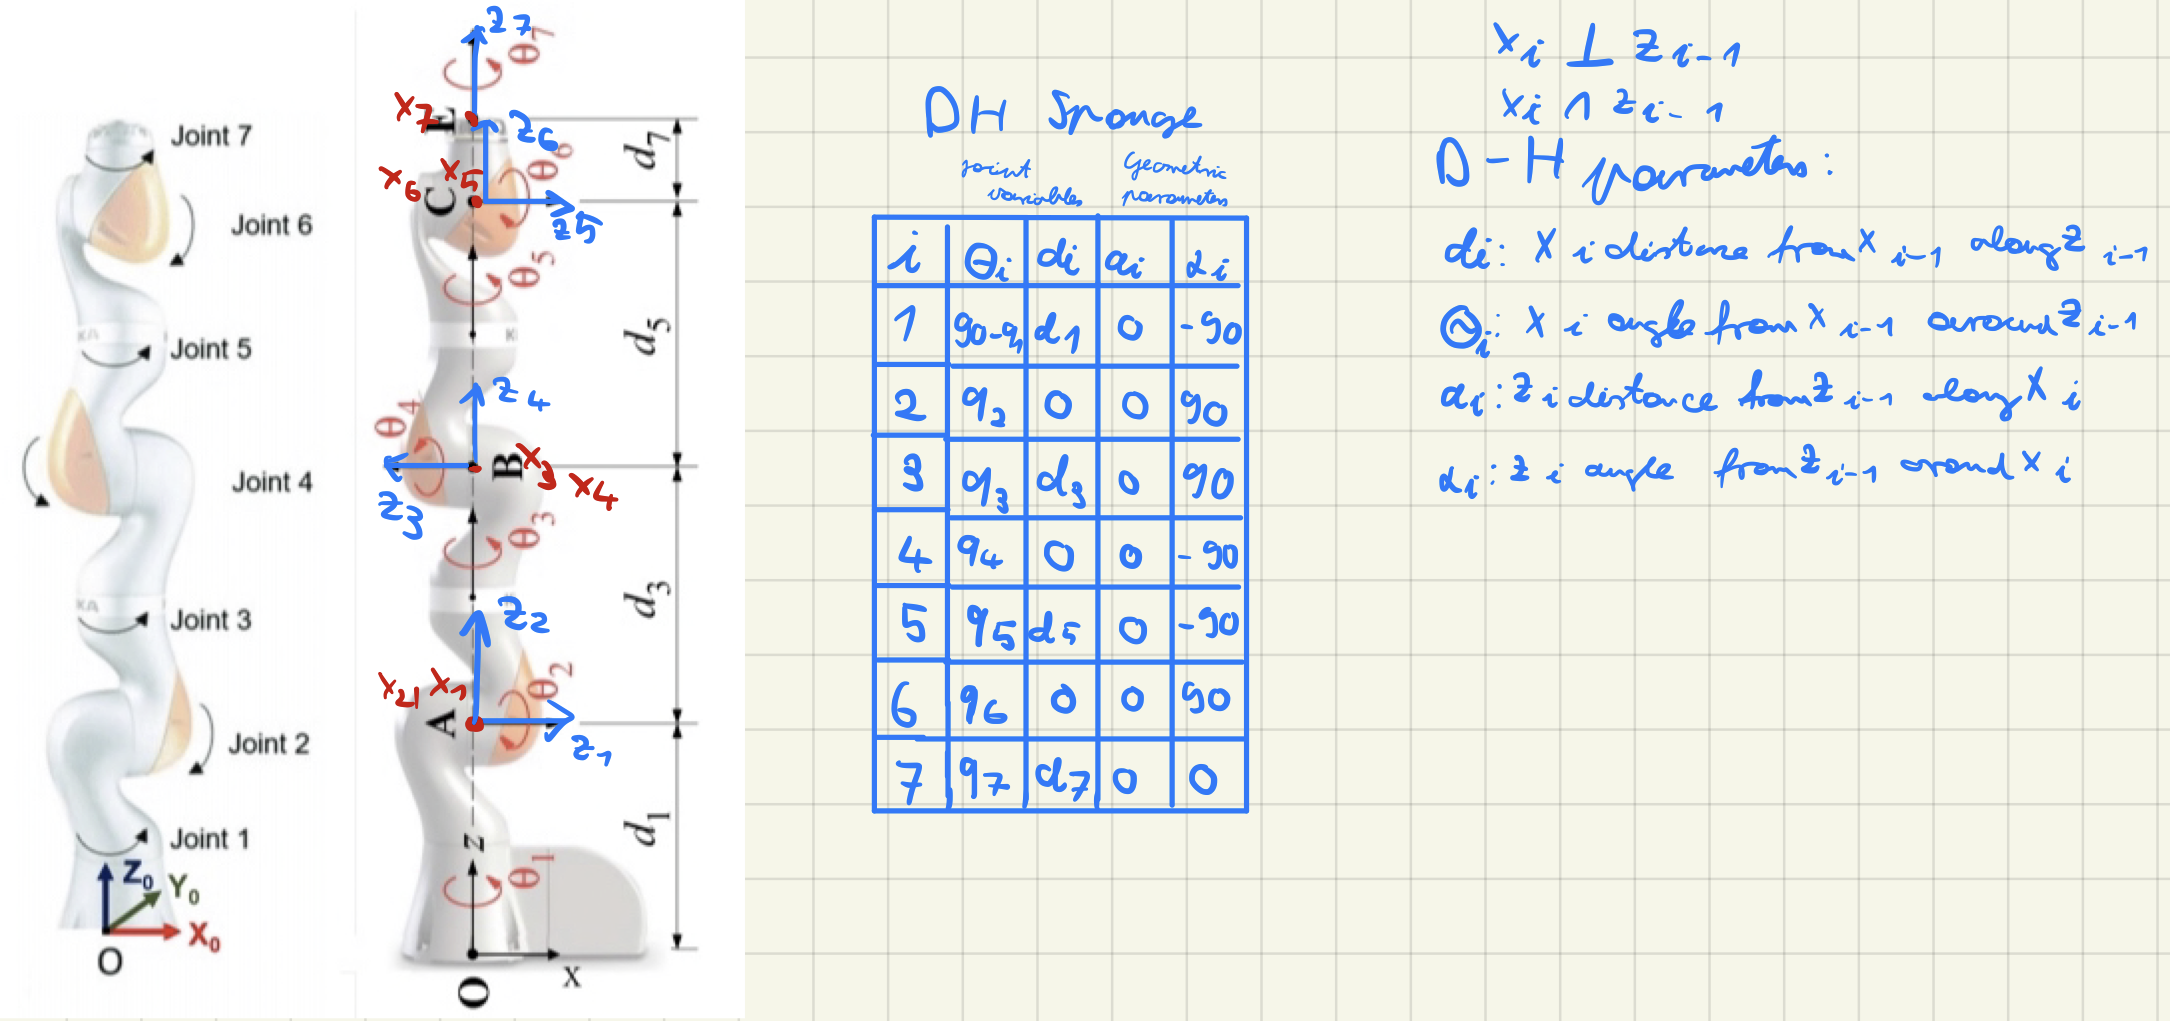 Joint 7
Joint 6
Joint 5
Joint 4
Joint 3
Joint 2
Joint 1
KA
KA
Z₀
Y₀
X₀
O
z₇
θ₇
x₇
E
z₆
θ₆
d₇
x₆
x₅
C
z₅
θ₅
d₅
z₄
θ₄
B
x₃
x₄
z₃
θ₃
d₃
z₂
θ₂
x₂,
x₁
A
z₁
z
θ₁
d₁
x
O
DH Sponge
joint variables
geometric parameters
i θi di ai αi
1 90-q₁ d₁ 0 -90
2 q₂ 0 0 90
3 q₃ d₃ 0 90
4 q₄ 0 0 -90
5 q₅ d₅ 0 -90
6 q₆ 0 0 90
7 q₇ d₇ 0 0
xi ⊥ zi-1
xi ∩ zi-1
D-H parameters:
di: x i distance from x i-1 along z i-1
θi: x i angle from x i-1 around z i-1
ai: z i distance from z i-1 along x i
αi: z i angle from z i-1 around x i